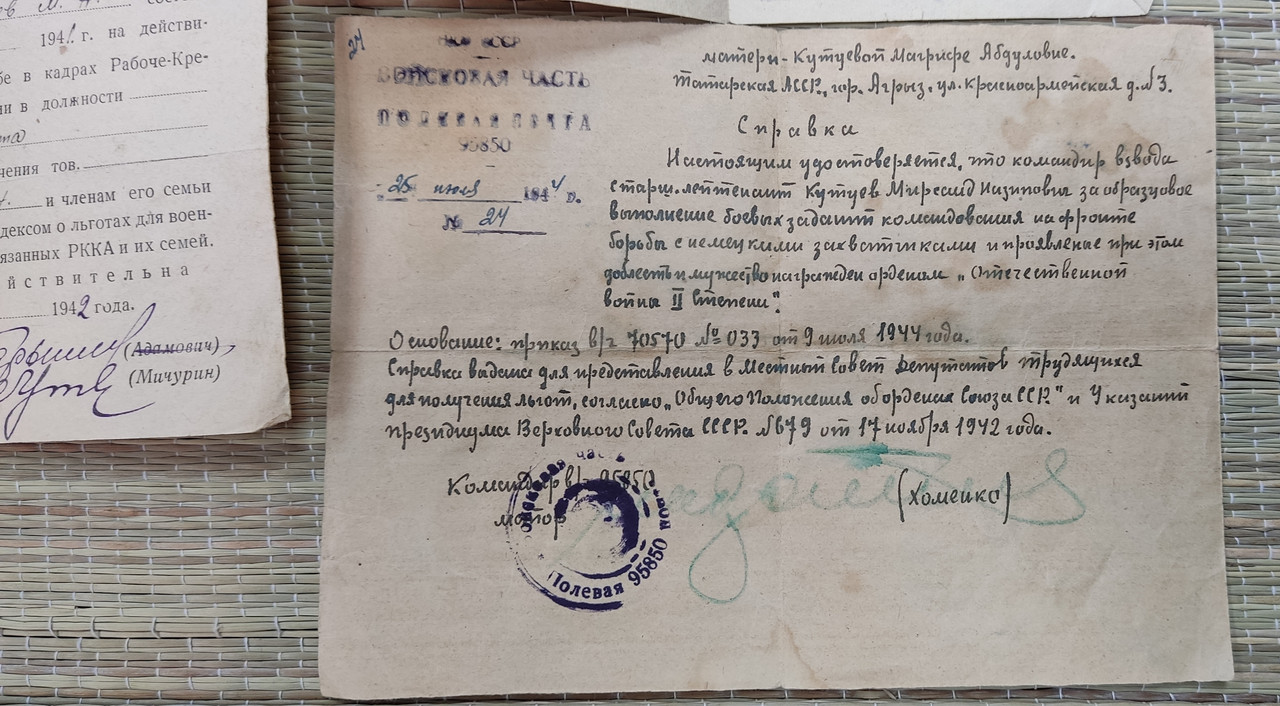 194 г. на действи-
бе в кадрах Рабоче-Кре-
ии в должности
чения тов.
и членам его семьи
дексом о льготах для воен-
язанных РККА и их семей.
йствительна
1942 года.
(Адамович)
(Мичурин)
24
НКО СССР
ВОЙСКОВАЯ ЧАСТЬ
ПОЛЕВАЯ ПОЧТА
95850
"25" июля 1944 г.
№ 24
матери - Кутуевой Магрифе Абдуловне.
Татарская АССР, гор. Агрыз, ул. Красноармейская д. №3.
Справка
Настоящим удостоверяется, что командир взвода
старш. лейтенант Кутуев Мирсаид Назипович за образцовое
выполнение боевых заданий командования на фронте
борьбы с немецкими захватчиками и проявленые при этом
доблесть и мужество награжден орденом „Отечественной
войны II Степени".
Основание: приказ в/ч 70570 № 033 от 9 июля 1944 года.
Справка выдана для представления в Местный Совет Депутатов трудящихся
для получения льгот, согласно „Общего Положения об орденах Союза ССР" и Указаний
президиума Верховного Совета СССР. №679 от 17 ноября 1942 года.
Командир в/ч 95850
майор
(Хоменко)
Войсковая часть
Полевая 95850 почта